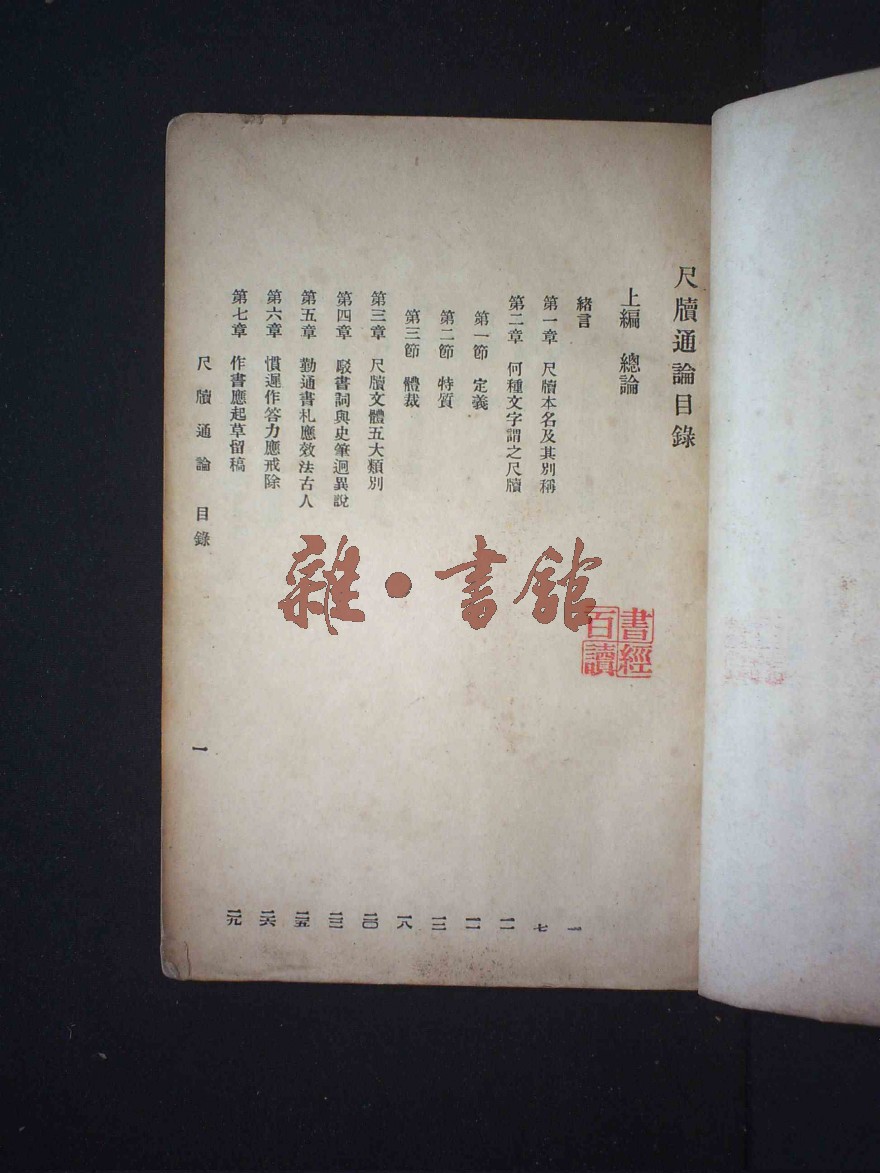 尺牘通論目錄
上編 總論
緒言 一
第一章 尺牘本名及其別稱 七
第二章 何種文字謂之尺牘 一一
第一節 定義 一一
第二節 特質 一三
第三節 體裁 一八
第三章 尺牘文體五大類別 二〇
第四章 駁書詞與史筆迥異說 二三
第五章 勤通書札應效法古人 二五
第六章 慣遲作答力應戒除 二六
第七章 作書應起草留稿 二九
尺牘通論 目錄
一
雜·書館
書經百讀